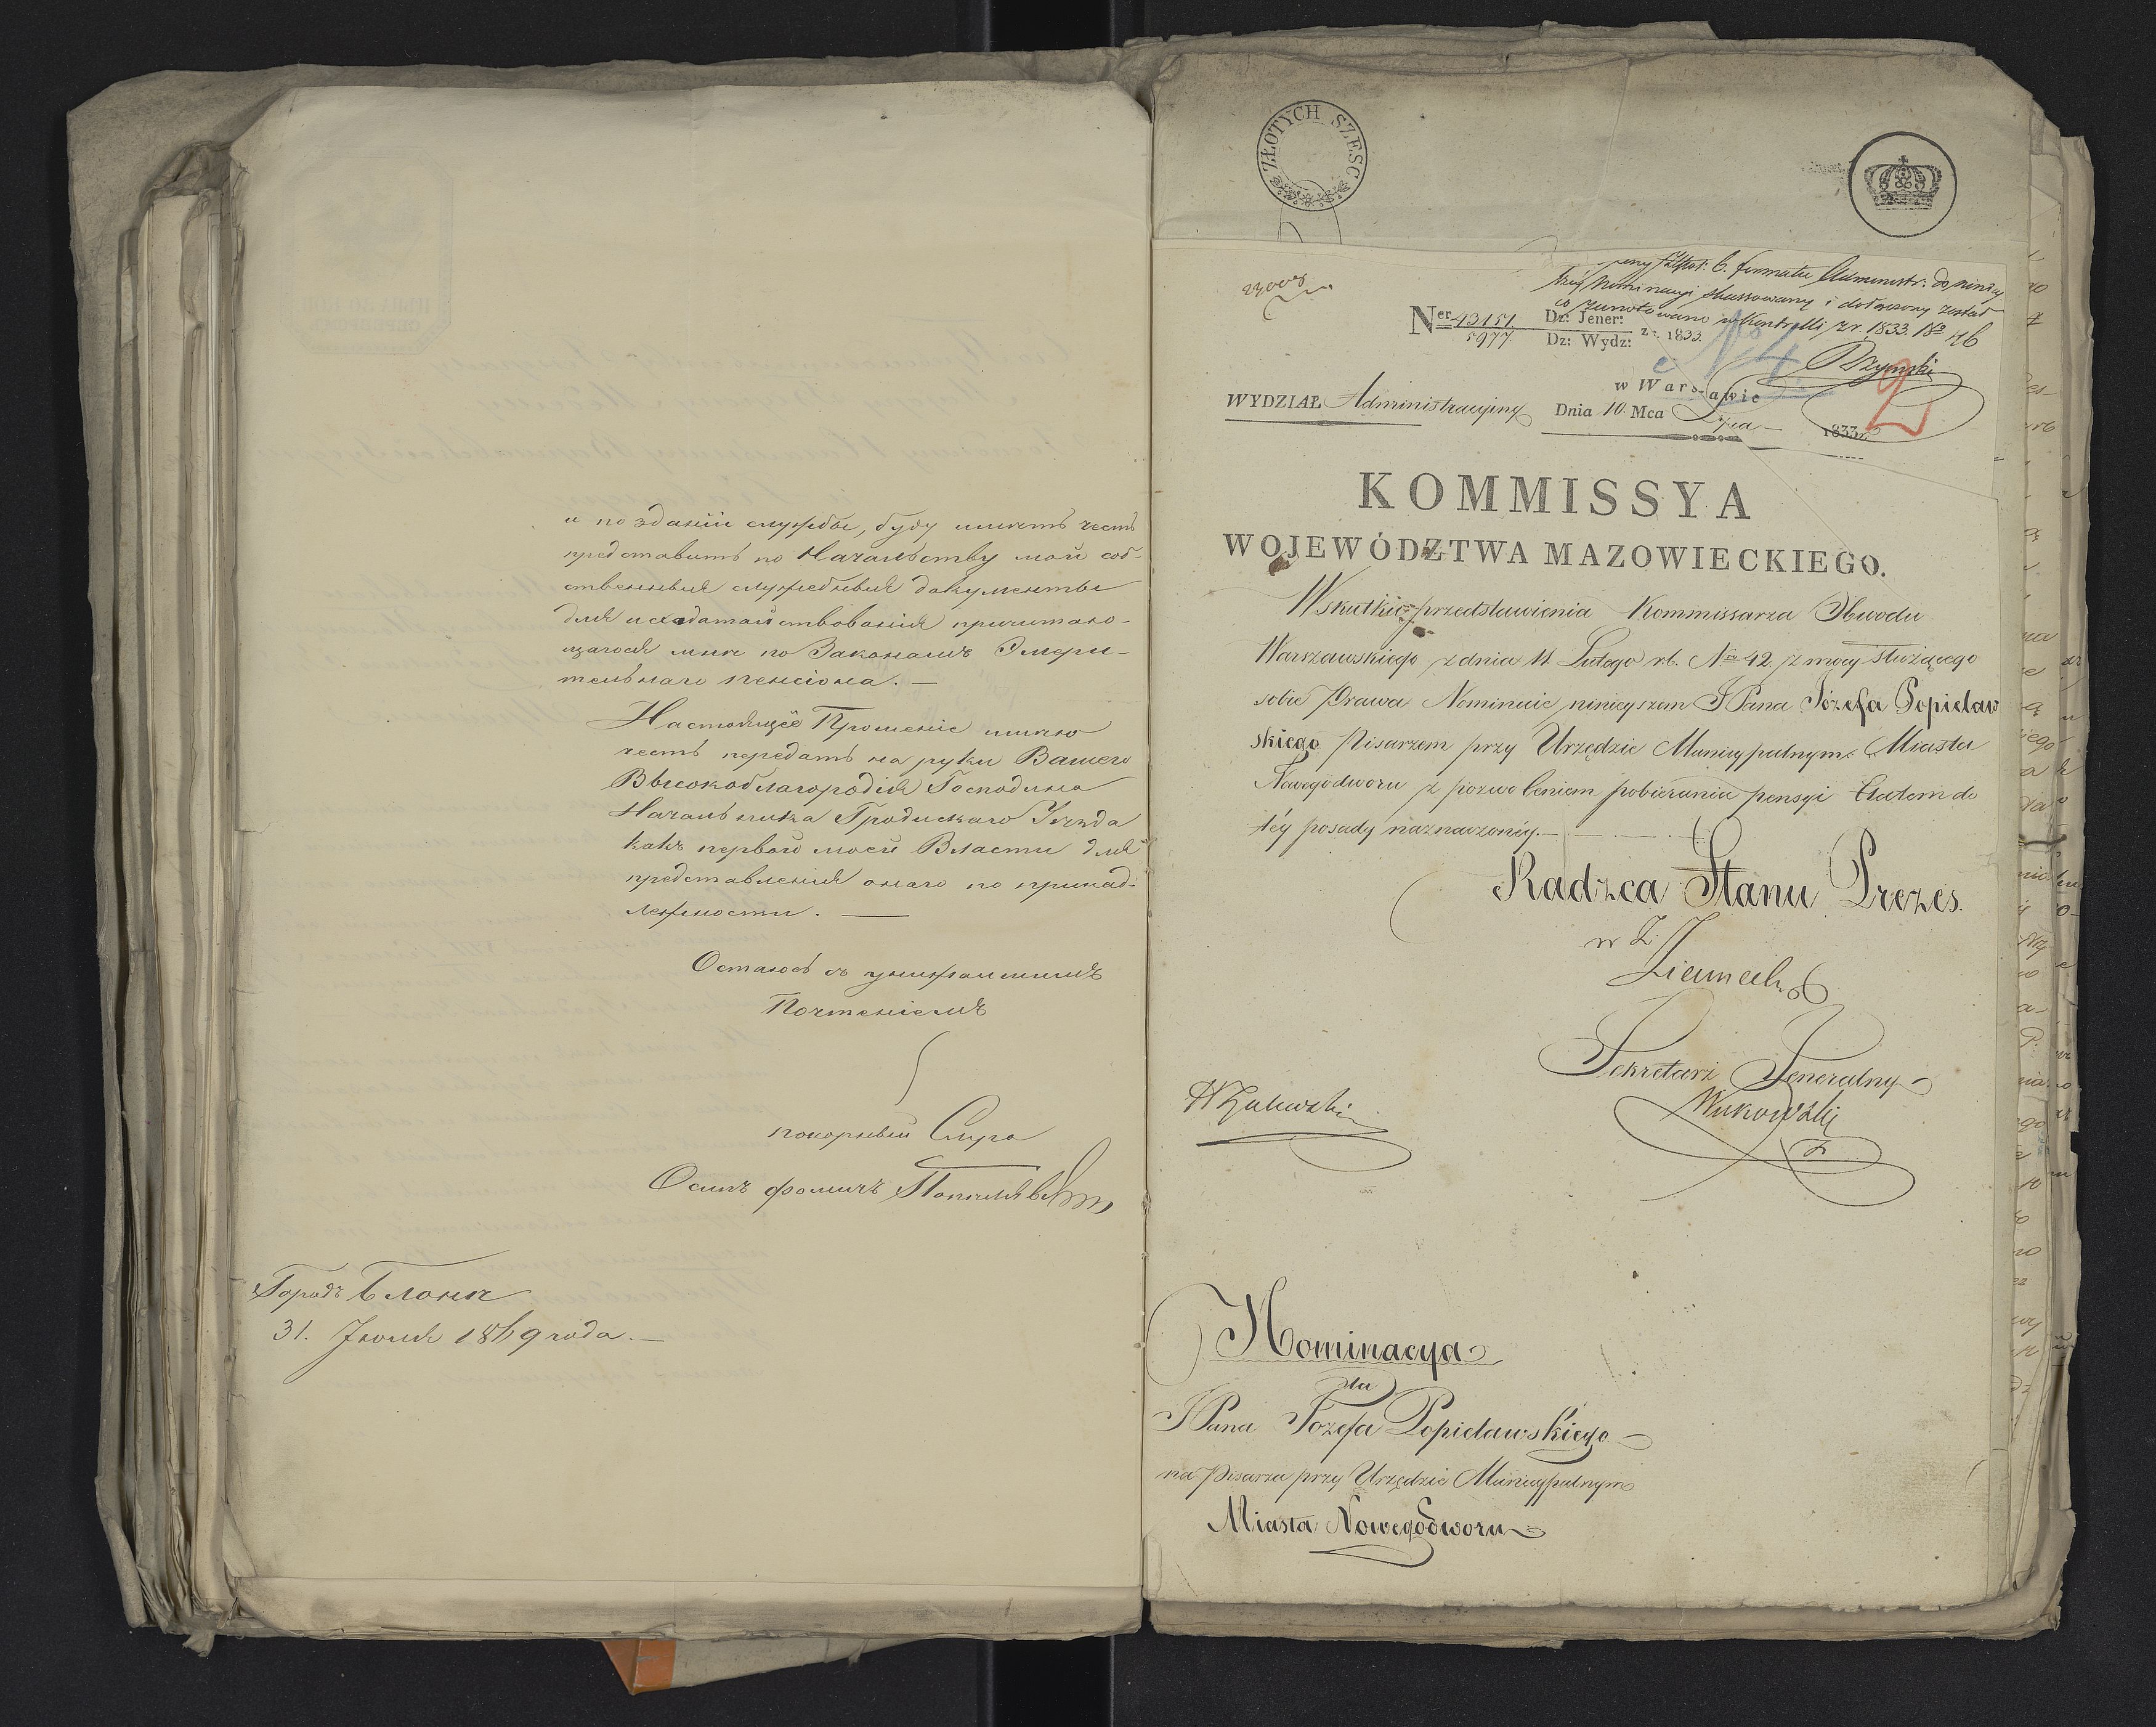 и по зданіи службы, буду имѣть честь
представить по Начальству мои соб-
ственныя служебныя документы
для исходатайствованія причитаю-
щагося мнѣ по Законамъ Эмери-
тельнаго пенсіона. —
Настоящеё Прошеніе имѣю
честь передать на руки Вашего
Высокоблагородія Господина
Начальника Гродискаго Уѣзда
какъ первой моей Власти для
представленія онаго по принад-
лежности. —
Остаюсь съ унижайшимъ
Почтеніемъ
покорный Слуга
Осипъ Фомичъ
Городъ Блоне
31. Іюля 1869 года. —
ZŁOTYCH SZEŚC
23003
Nominacyi skassowany i dołączony został
co zanotowano w Kontrolli z r. 1833. No 46
Ner 43151 Dz: Jener:
5977 Dz: Wydz: z r. 1833.
No 4
w Warszawie
2
WYDZIAŁ Administracyjny Dnia 10. Mca Lipca 1833 r.
KOMMISSYA
WOJEWÓDZTWA MAZOWIECKIEGO.
Wskutku przedstawienia Kommissarza Obwodu
Warszawskiego z dnia 11. Lutego r.b. Nro 42. z mocy służącego
sobie Prawa Nominuie ninieyszem J Pana Józefa Popielaw
skiego Pisarzem przy Urzędzie Municypalnym Miasta
Nowegodworu z pozwoleniem pobierania pensyi Etatem do
téy posady naznaczonéy. —
Radzca Stanu Prezes.
w Z.
Sekretarz Jeneralny
Nominacya
dla
J Pana Józefa Popielawskiego —
na Pisarza przy Urzędzie Municypalnym
Miasta Nowegodworu